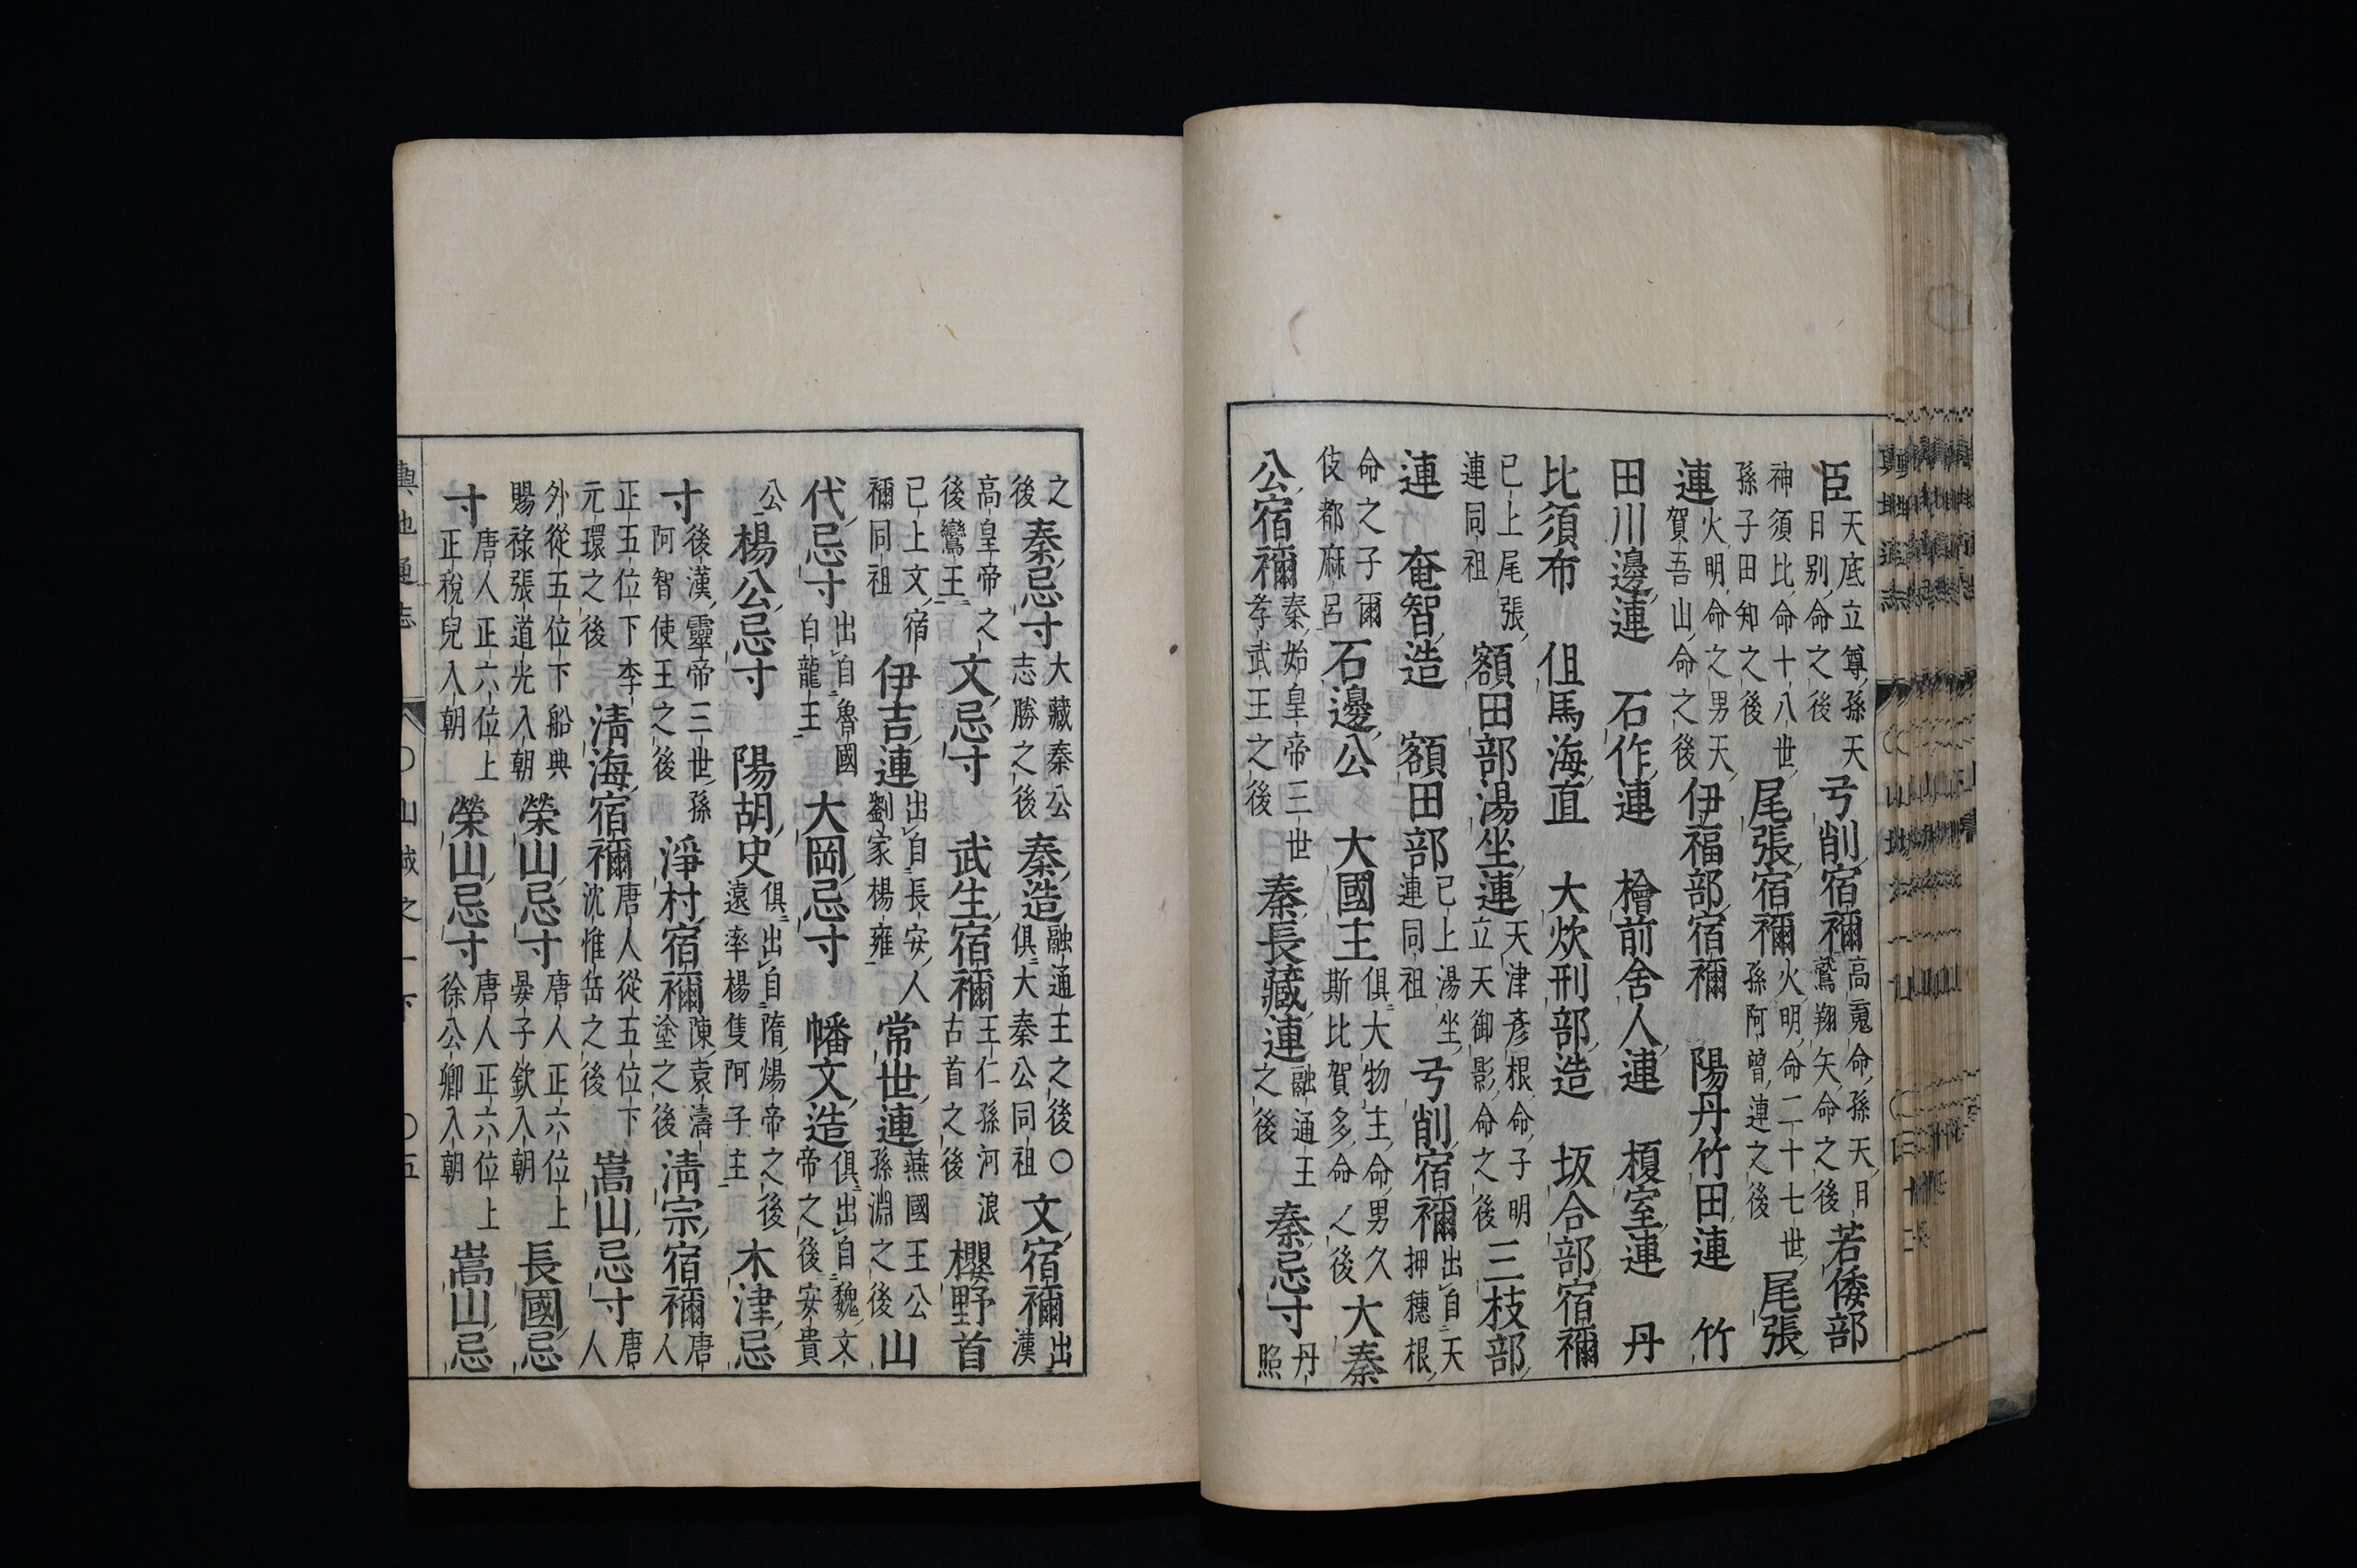 臣天底立尊孫天日別命之後弓削宿禰高魂命孫天日鷲翔矢命之後若倭部
神須比命十八世孫子田知之後尾張宿禰火明命二十七世孫阿曾連之後尾張
連火明命之男天賀吾山命之後伊福部宿禰 陽丹竹田連 竹
田川邊連 石作連 檜前舍人連 榎室連 丹
比須布 伹馬海直 大炊刑部造 坂合部宿禰
已上尾張連同祖額田部湯坐連天津彦根命子明立天御影命之後三枝部
連 奄智造 額田部已上湯坐連同祖弓削宿禰出自天押穗根
命之子爾伎都麻呂石邊公 大國主俱大物主命男久斯比賀多命之後大秦
公宿禰秦始皇帝三世孝武王之後秦長藏連融通王之後秦忌寸丹照
之後秦忌寸大藏秦公志勝之後秦造融通王之後俱大秦公同祖〇文宿禰出漢
高皇帝之後鸞王文忌寸 武生宿禰王仁孫河浪古首之後櫻野首
已上文宿禰同祖伊吉連出自長安人劉家楊雍常世連燕國王公孫淵之後山
代忌寸出自魯國白龍王大岡忌寸 幡文造俱出自魏文帝之後安貴
公楊公忌寸 陽胡史俱出自隋煬帝之後遠率楊隻阿子主木津忌
寸後漢靈帝三世孫阿智使王之後淨村宿禰陳袁濤塗之後淸宗宿禰唐人
正五位下李元環之後淸海宿禰唐人從五位下沈惟岳之後嵩山忌寸唐人
外從五位下船典賜祿張道光入朝榮山忌寸唐人正六位上晏子欽入朝長國忌
寸唐人正六位上正稅兒入朝榮山忌寸唐人正六位上徐公卿入朝嵩山忌
輿地通志 〇山城之一下 〇五